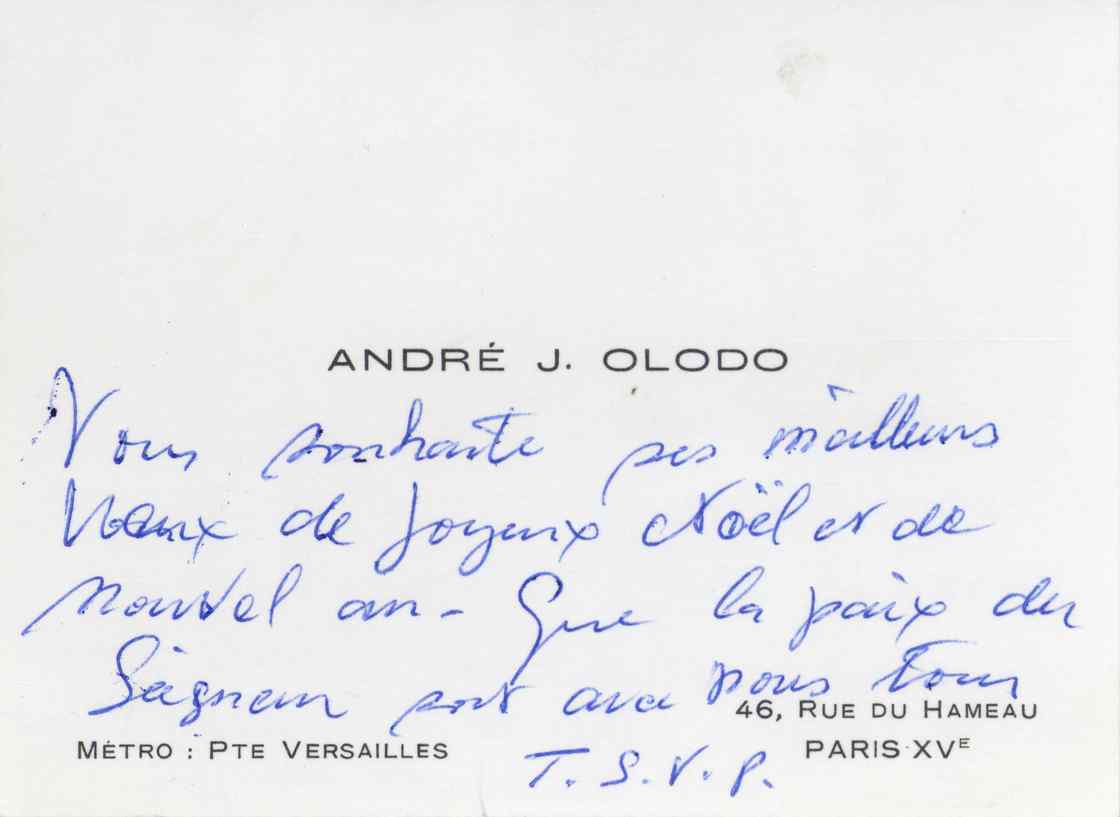 ANDRÉ J. OLODO
Vous souhaite ses meilleurs
Vœux de Joyeux Noël et de
nouvel an - Que la paix du
Seigneur soit avec nous tous
46, RUE DU HAMEAU
MÉTRO : PTE VERSAILLES
PARIS-XVE
T. S. V. P.